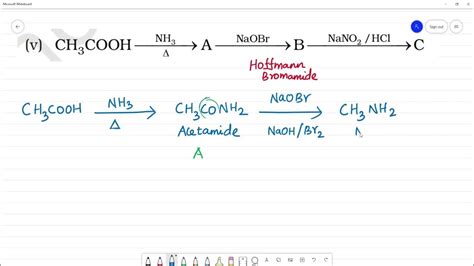 Microsoft Whiteboard
Sign out
(v) CH₃COOH —NH₃/Δ→ A —NaOBr→ B —NaNO₂/HCl→ C
Hoffmann
Bromamide
CH₃COOH —NH₃/Δ→ CH₃CONH₂ —NaOBr / NaOH/Br₂→ CH₃NH₂
Acetamide
A